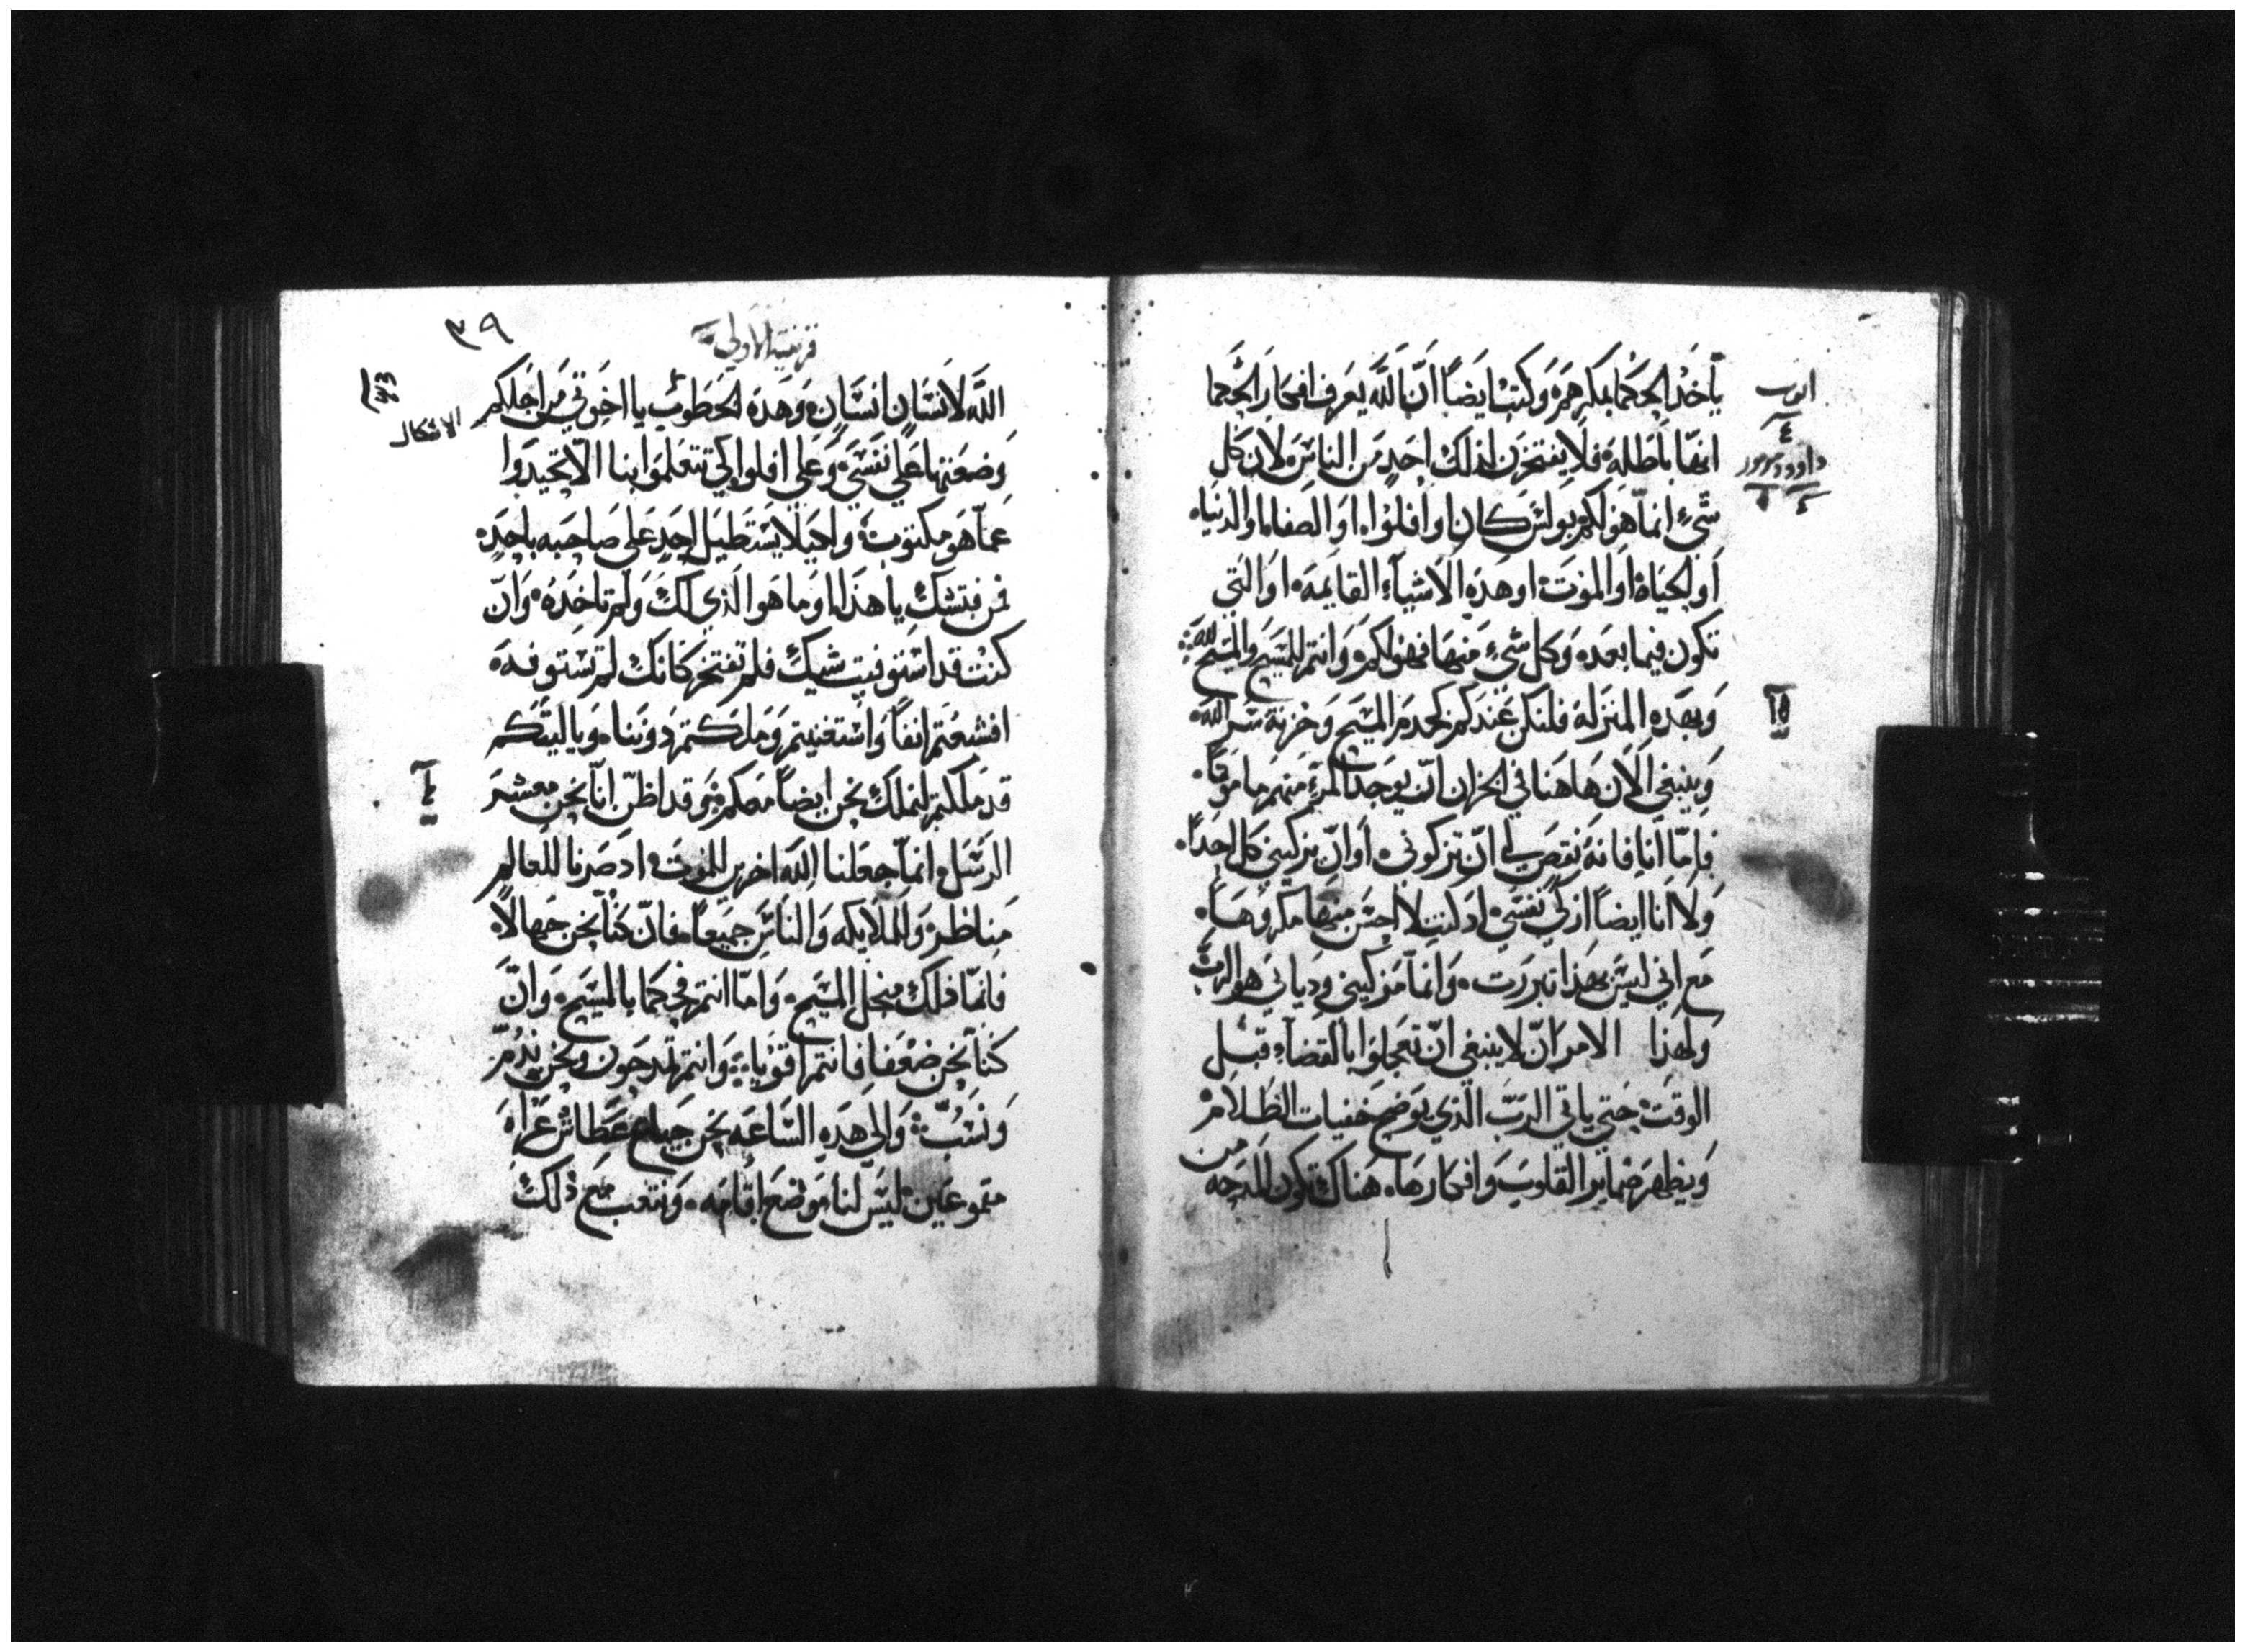 يأخذ الحكما بمكرهم وكتب ايضاً ان الله يعرف افكار الحكما
انها باطله فلا يفتخرن لذلك احد من الناس لان كل
شيء انما هو لكم بولس كان او افلوا او الصفا او الدنيا
او الحياه او الموت او هذه الاشياء القايمه او التي
تكون فيما بعده وكل شيء منها فهو لكم وانتم للمسيح والمسيح لله
وبهذه المنزله فلنكن عندكم كخدم المسيح وخزنة سر الله
وينبغي الان هاهنا في الخزان ان يوجد المرء منهم مامونا
فاما انا فانه نقص لي ان تزكوني او ان يزكيني كل احداً
ولا انا ايضاً ازكي نفسي اذ كنت لا احس منها مكروهاً
مع اني ليس بهذا تبررت وانما مزكيني ودياني هو الرب
ولهذا الامر ان لا ينبغي ان تعجلوا بالقضاء قبل
الوقت حتي ياتي الرب الذي يوضح خفيات الظلام
ويظهر ضماير القلوب وافكارها هناك تكون المدحه من
ايوب
٤
داوود مزمور
١٥
٣٩
قرنتيه الاولي
الله لانسان انسان وهذه الخطوب يا اخوتي من اجلكم
وضعتها علي نفسي وعلي افلوا لكي تتعلموا بنا الا تحيدوا
عما هو مكتوب وكيلا يستطيل احد علي صاحبه باحد
فمن فتشك يا هذا او ما هو الذي لك ولم تاخذه وان
كنت قد استوفيت شيك فلم تفتخر كانك لم تستوفه
افشبعتم انفاً واستغنيتم وملكتم دوننا ويا ليتكم
قد ملكتم لنملك نحن ايضاً معكم وقد اظن انا نحن معشر
الرسل انما جعلنا الله اخرين للموت اد صرنا للعالم
مناظر والملايكه والناس جميعاً فان كنا نحن جهالا
فانما ذلك منجل المسيح واما انتم فحكما بالمسيح وان
كنا نحن ضعفا فانتم اقوياء وانتم تمدحون ونحن نذم
ونسب والي هذه الساعه نحن جياع عطاش عراه
مقموعين ليس لنا موضع اقامه ونتعب مع ذلك
الاشكال